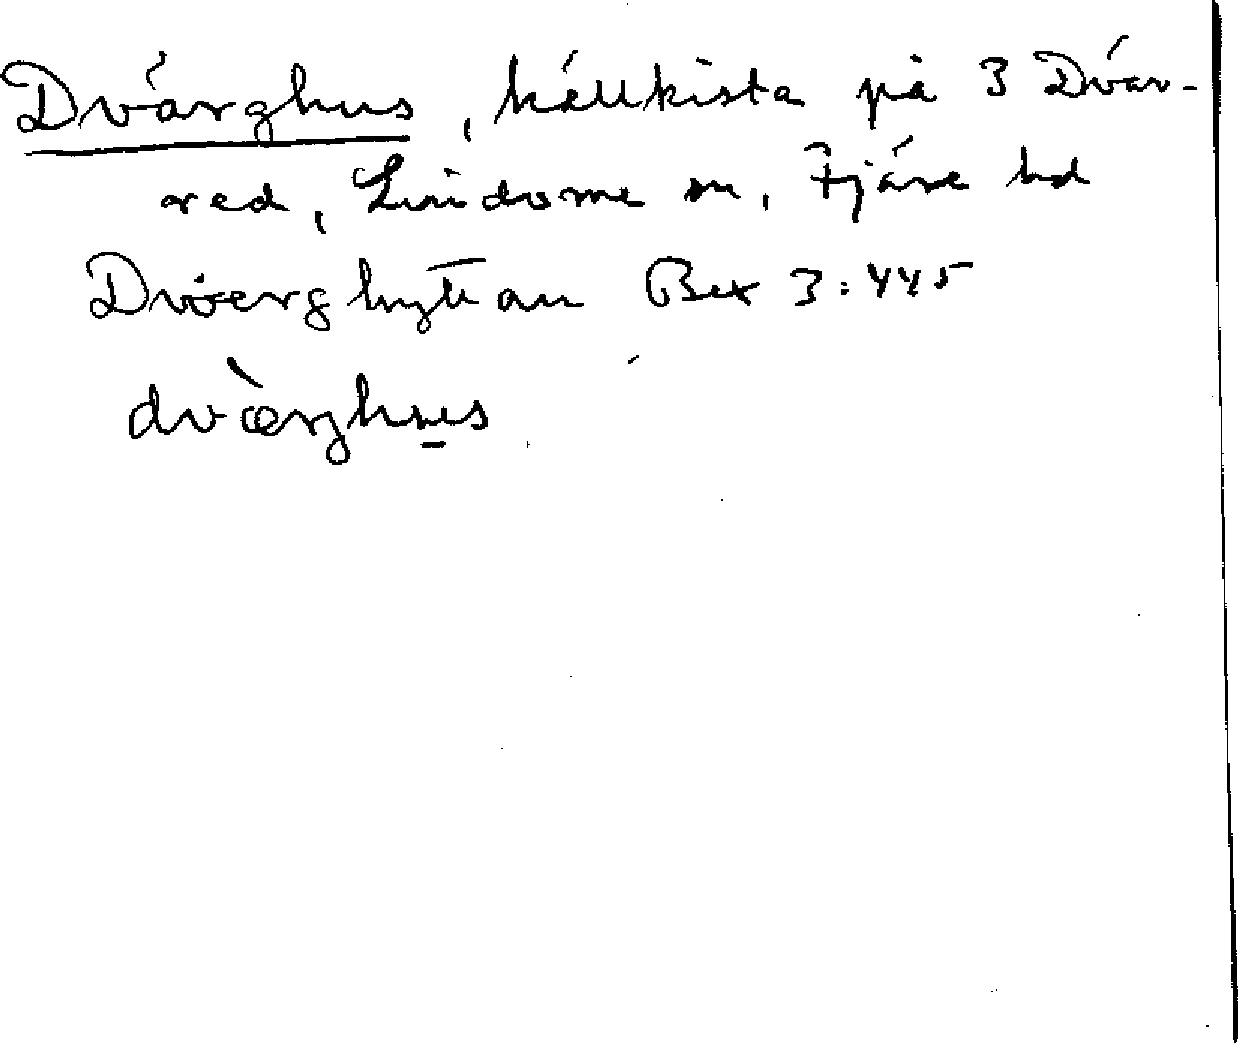 Dvärghus, hällkista på 3 Dvär-
red, Lindome sn, Fjäre hd
Dværghyttan Bex 3:445
dvæ̀rghus